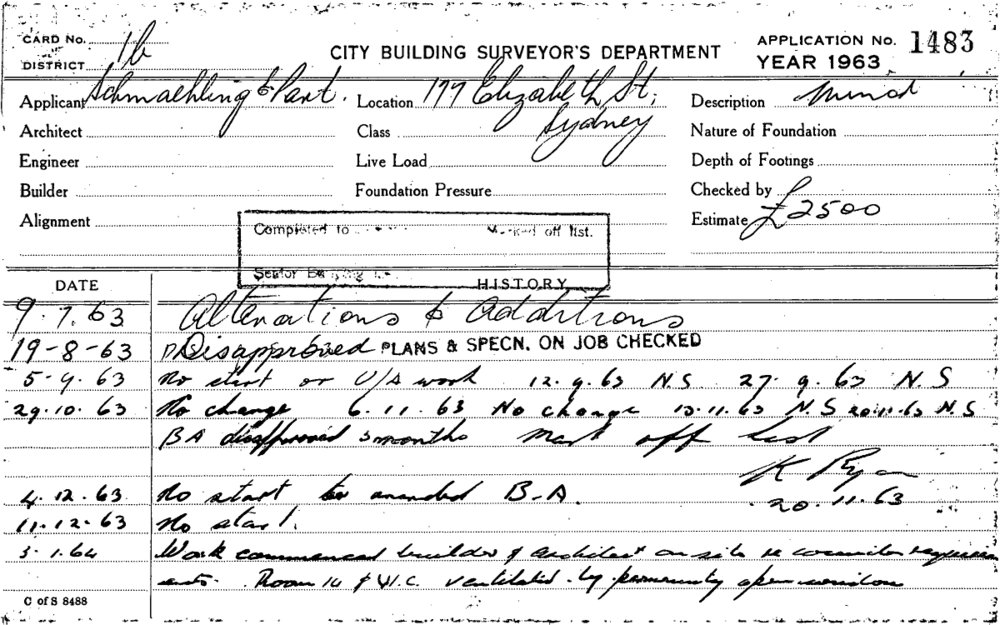 CARD No. 16
CITY BUILDING SURVEYOR'S DEPARTMENT
APPLICATION No. 1483
DISTRICT
YEAR 1963
Applicant Schmaehling & Part. Location 177 Elizabeth St, Description Minor
Sydney
Architect Class Nature of Foundation
Engineer Live Load Depth of Footings
Builder Foundation Pressure Checked by
Alignment Estimate £2500
Completed to Marked off list.
Senior Building
DATE HISTORY
9.7.63 Alterations & Additions
19-8-63 Disapproved PLANS & SPECN. ON JOB CHECKED
5-9.63 No start or U/A work 12.9.63 N.S 27.9.63 N.S
29.10.63 No change 6.11.63 No change 13.11.63 N.S 20.11.63 N.S
BA disapproved 3 months Mark off list
K Ryan
20.11.63
4.12.63 No start to amended B.A.
11.12.63 No start.
3.1.64 Work commenced builder & architect on site re councils
Room 14 & W.C. ventilated by permanently open window
C of S 8488